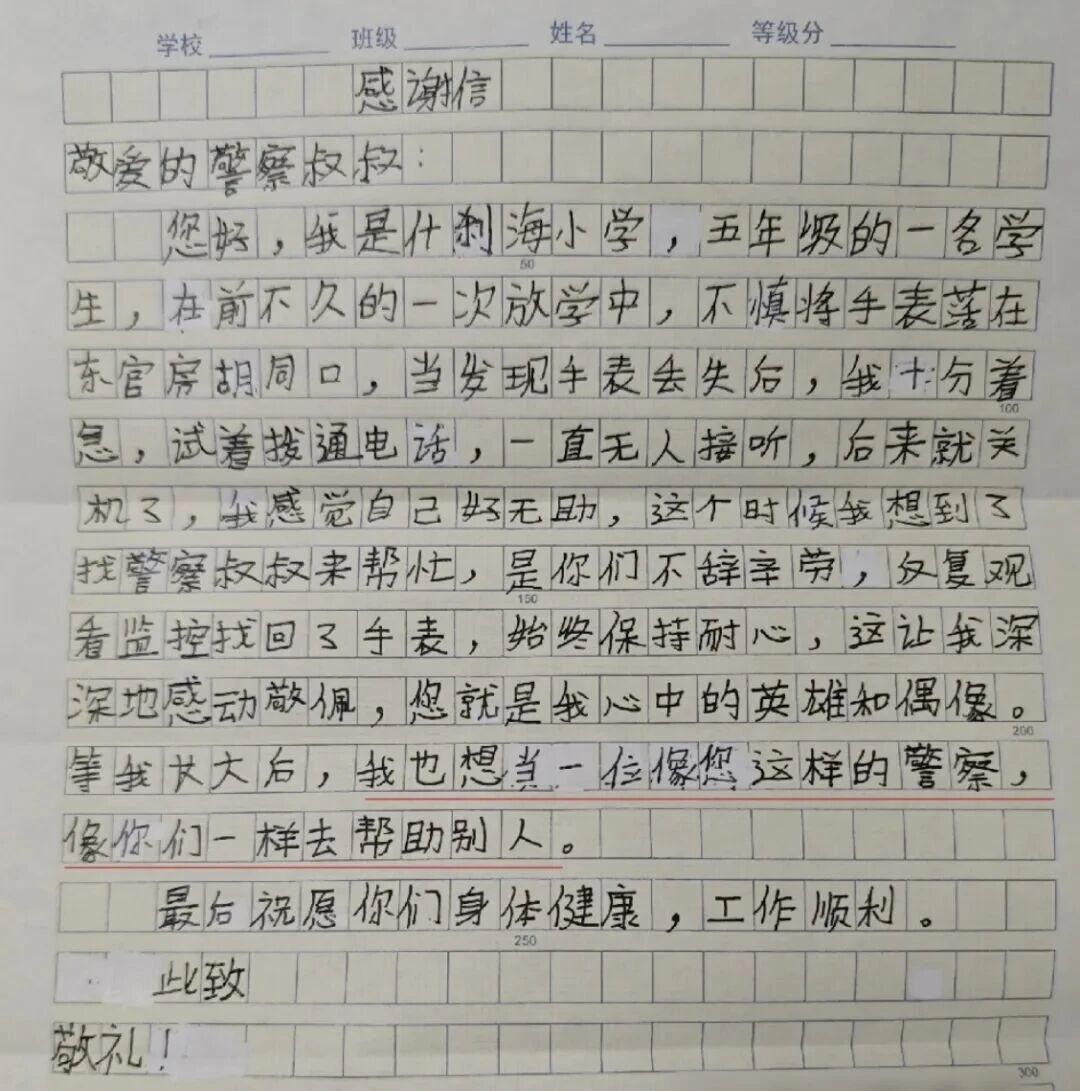 学校 班级 姓名 等级分
感谢信
敬爱的警察叔叔：
您好，我是什刹海小学，五年级的一名学
50
生，在前不久的一次放学中，不慎将手表落在
东官房胡同口，当发现手表丢失后，我十分着
100
急，试着拨通电话，一直无人接听，后来就关
机了，我感觉自己好无助，这个时候我想到了
找警察叔叔来帮忙，是你们不辞辛劳，反复观
150
看监控找回了手表，始终保持耐心，这让我深
深地感动敬佩，您就是我心中的英雄和偶像。
200
等我长大后，我也想当一位像您这样的警察，
像你们一样去帮助别人。
最后祝愿你们身体健康，工作顺利。
250
此致
敬礼！
300